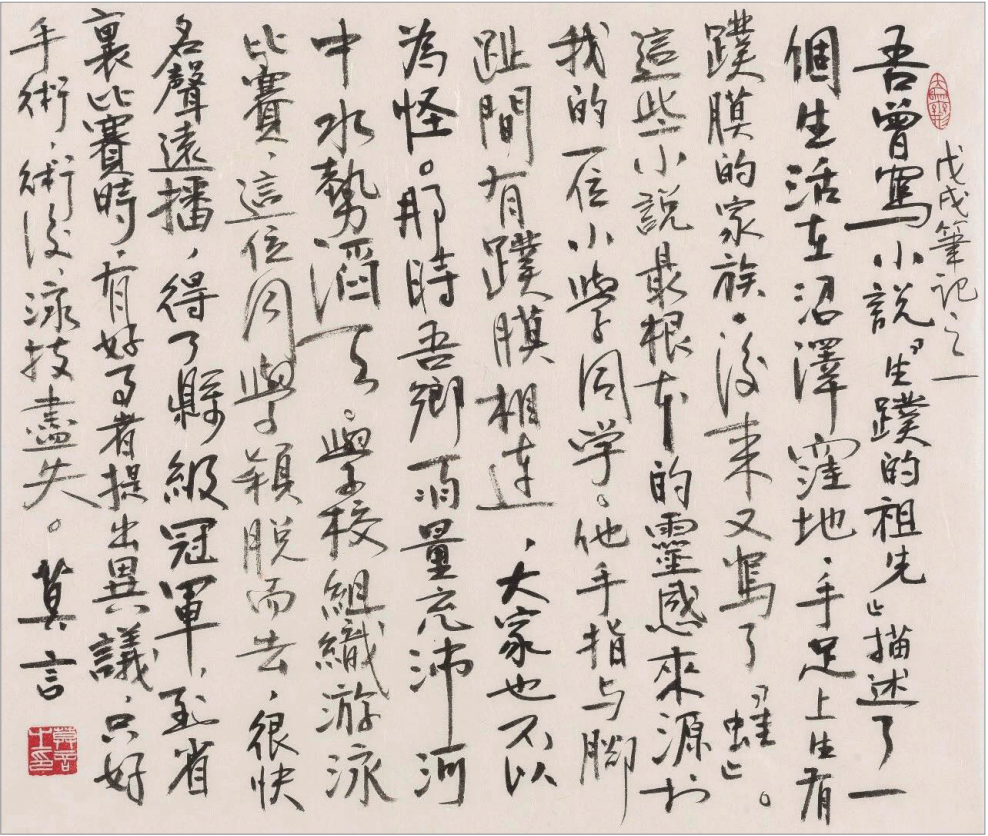 戊戌筆記之一
吾曾寫小說「生蹼的祖先」描述了一
個生活在沼澤窪地、手足上生有
蹼膜的家族。後来又寫了「蛙」。
這些小說最根本的靈感來源於
我的一位小學同学。他手指与脚
趾間有蹼膜相連，大家也不以
為怪。那時吾鄉雨量充沛河
中水勢滔天。學校組織游泳
比賽、這位同學穎脱而去，很快
名聲遠播，得了縣級冠軍，到省
裏比賽時，有好事者提出異議，只好
手術，術後，泳技盡失。莫言